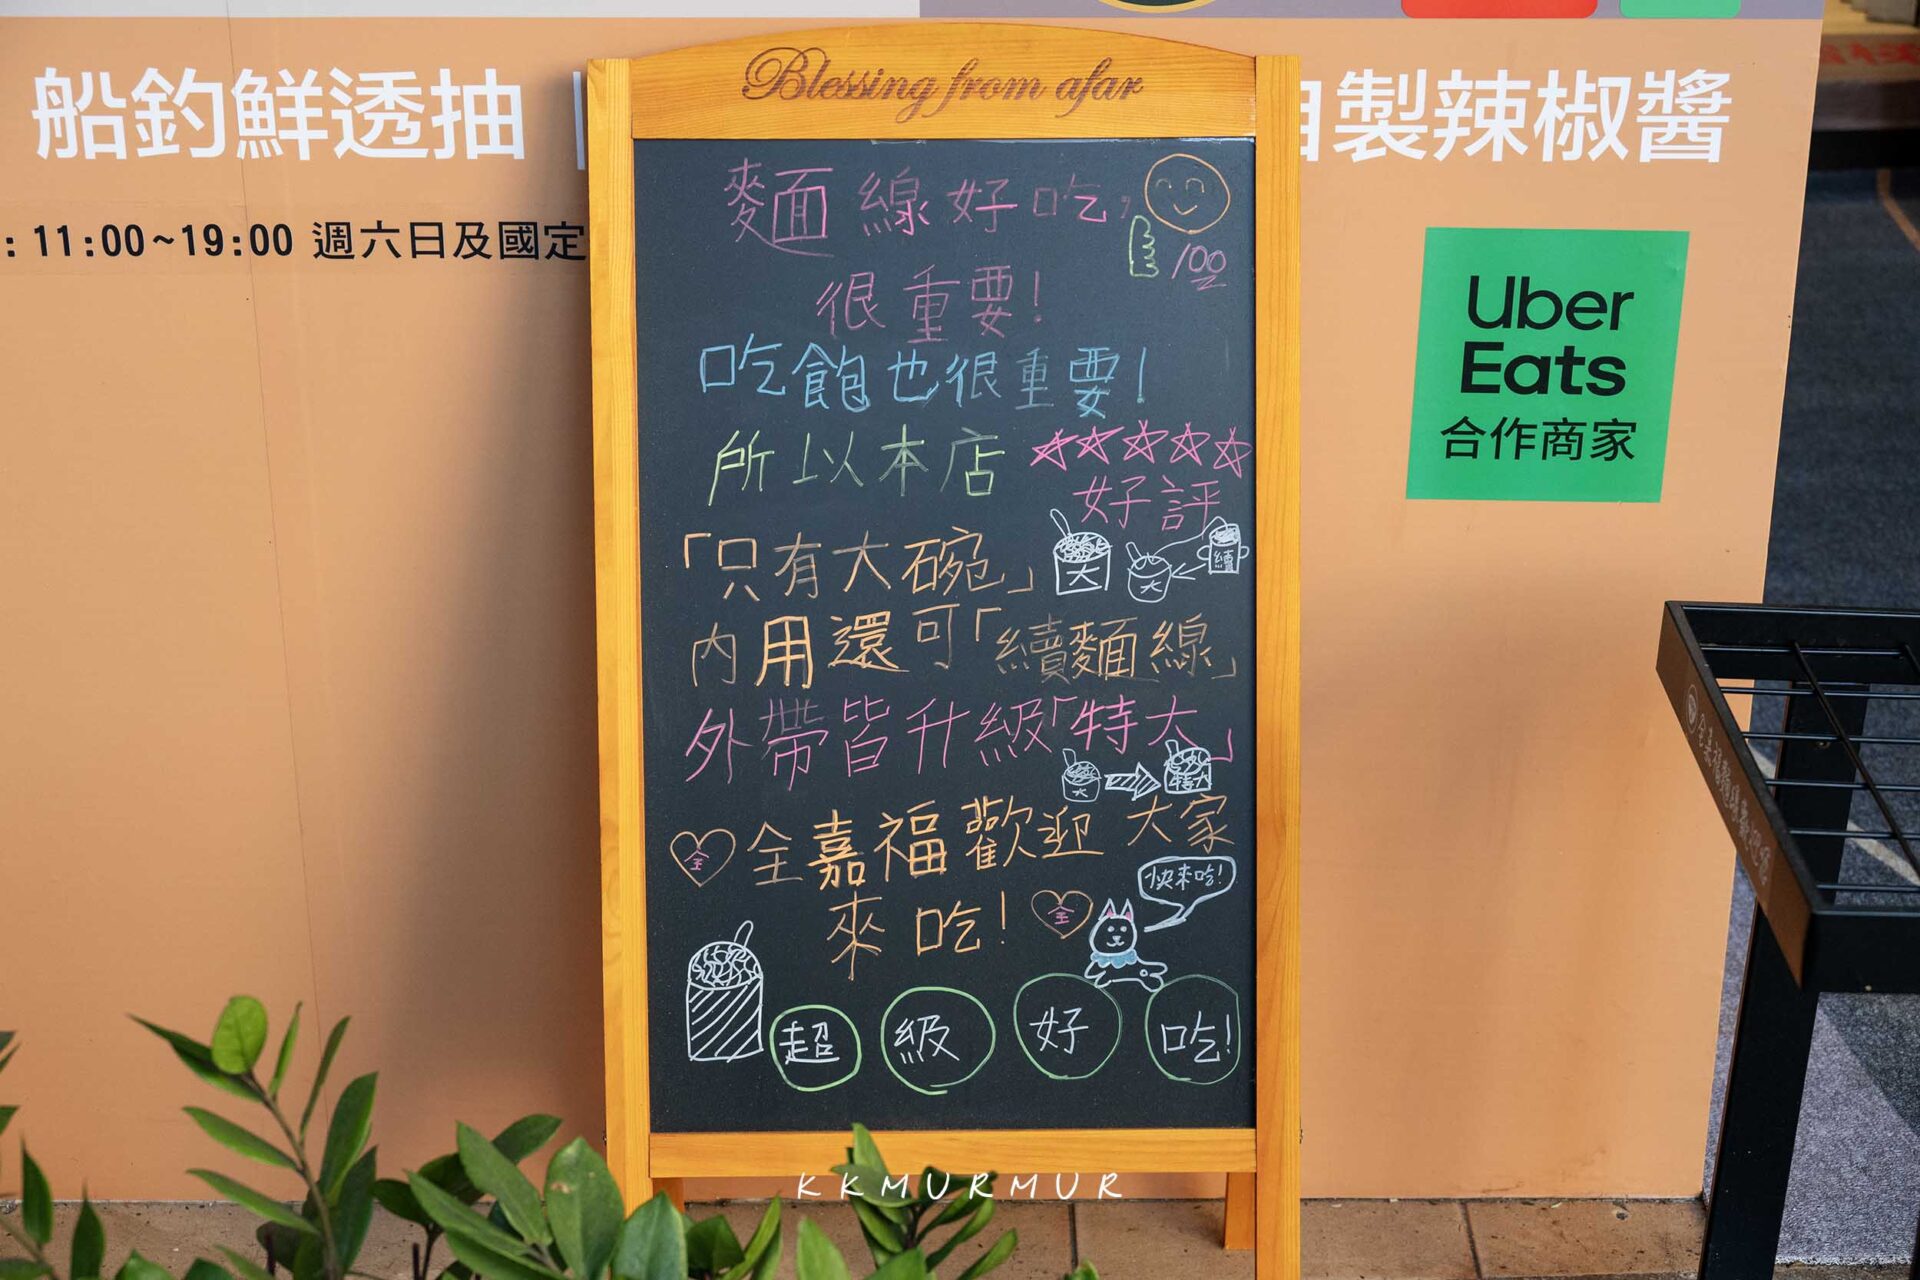 Blessing from afar
船釣鮮透抽
自製辣椒醬
: 11:00~19:00 週六日及國定
Uber
Eats
合作商家
麵線好吃,
100
很重要!
吃飽也很重要!
所以本店
好評
「只有大碗」
大
大
續
內用還可「續麵線」
外帶皆升級「特大」
大
特大
全
全嘉福歡迎大家
來吃!
全
快來吃!
超級好吃!
KKMURMUR